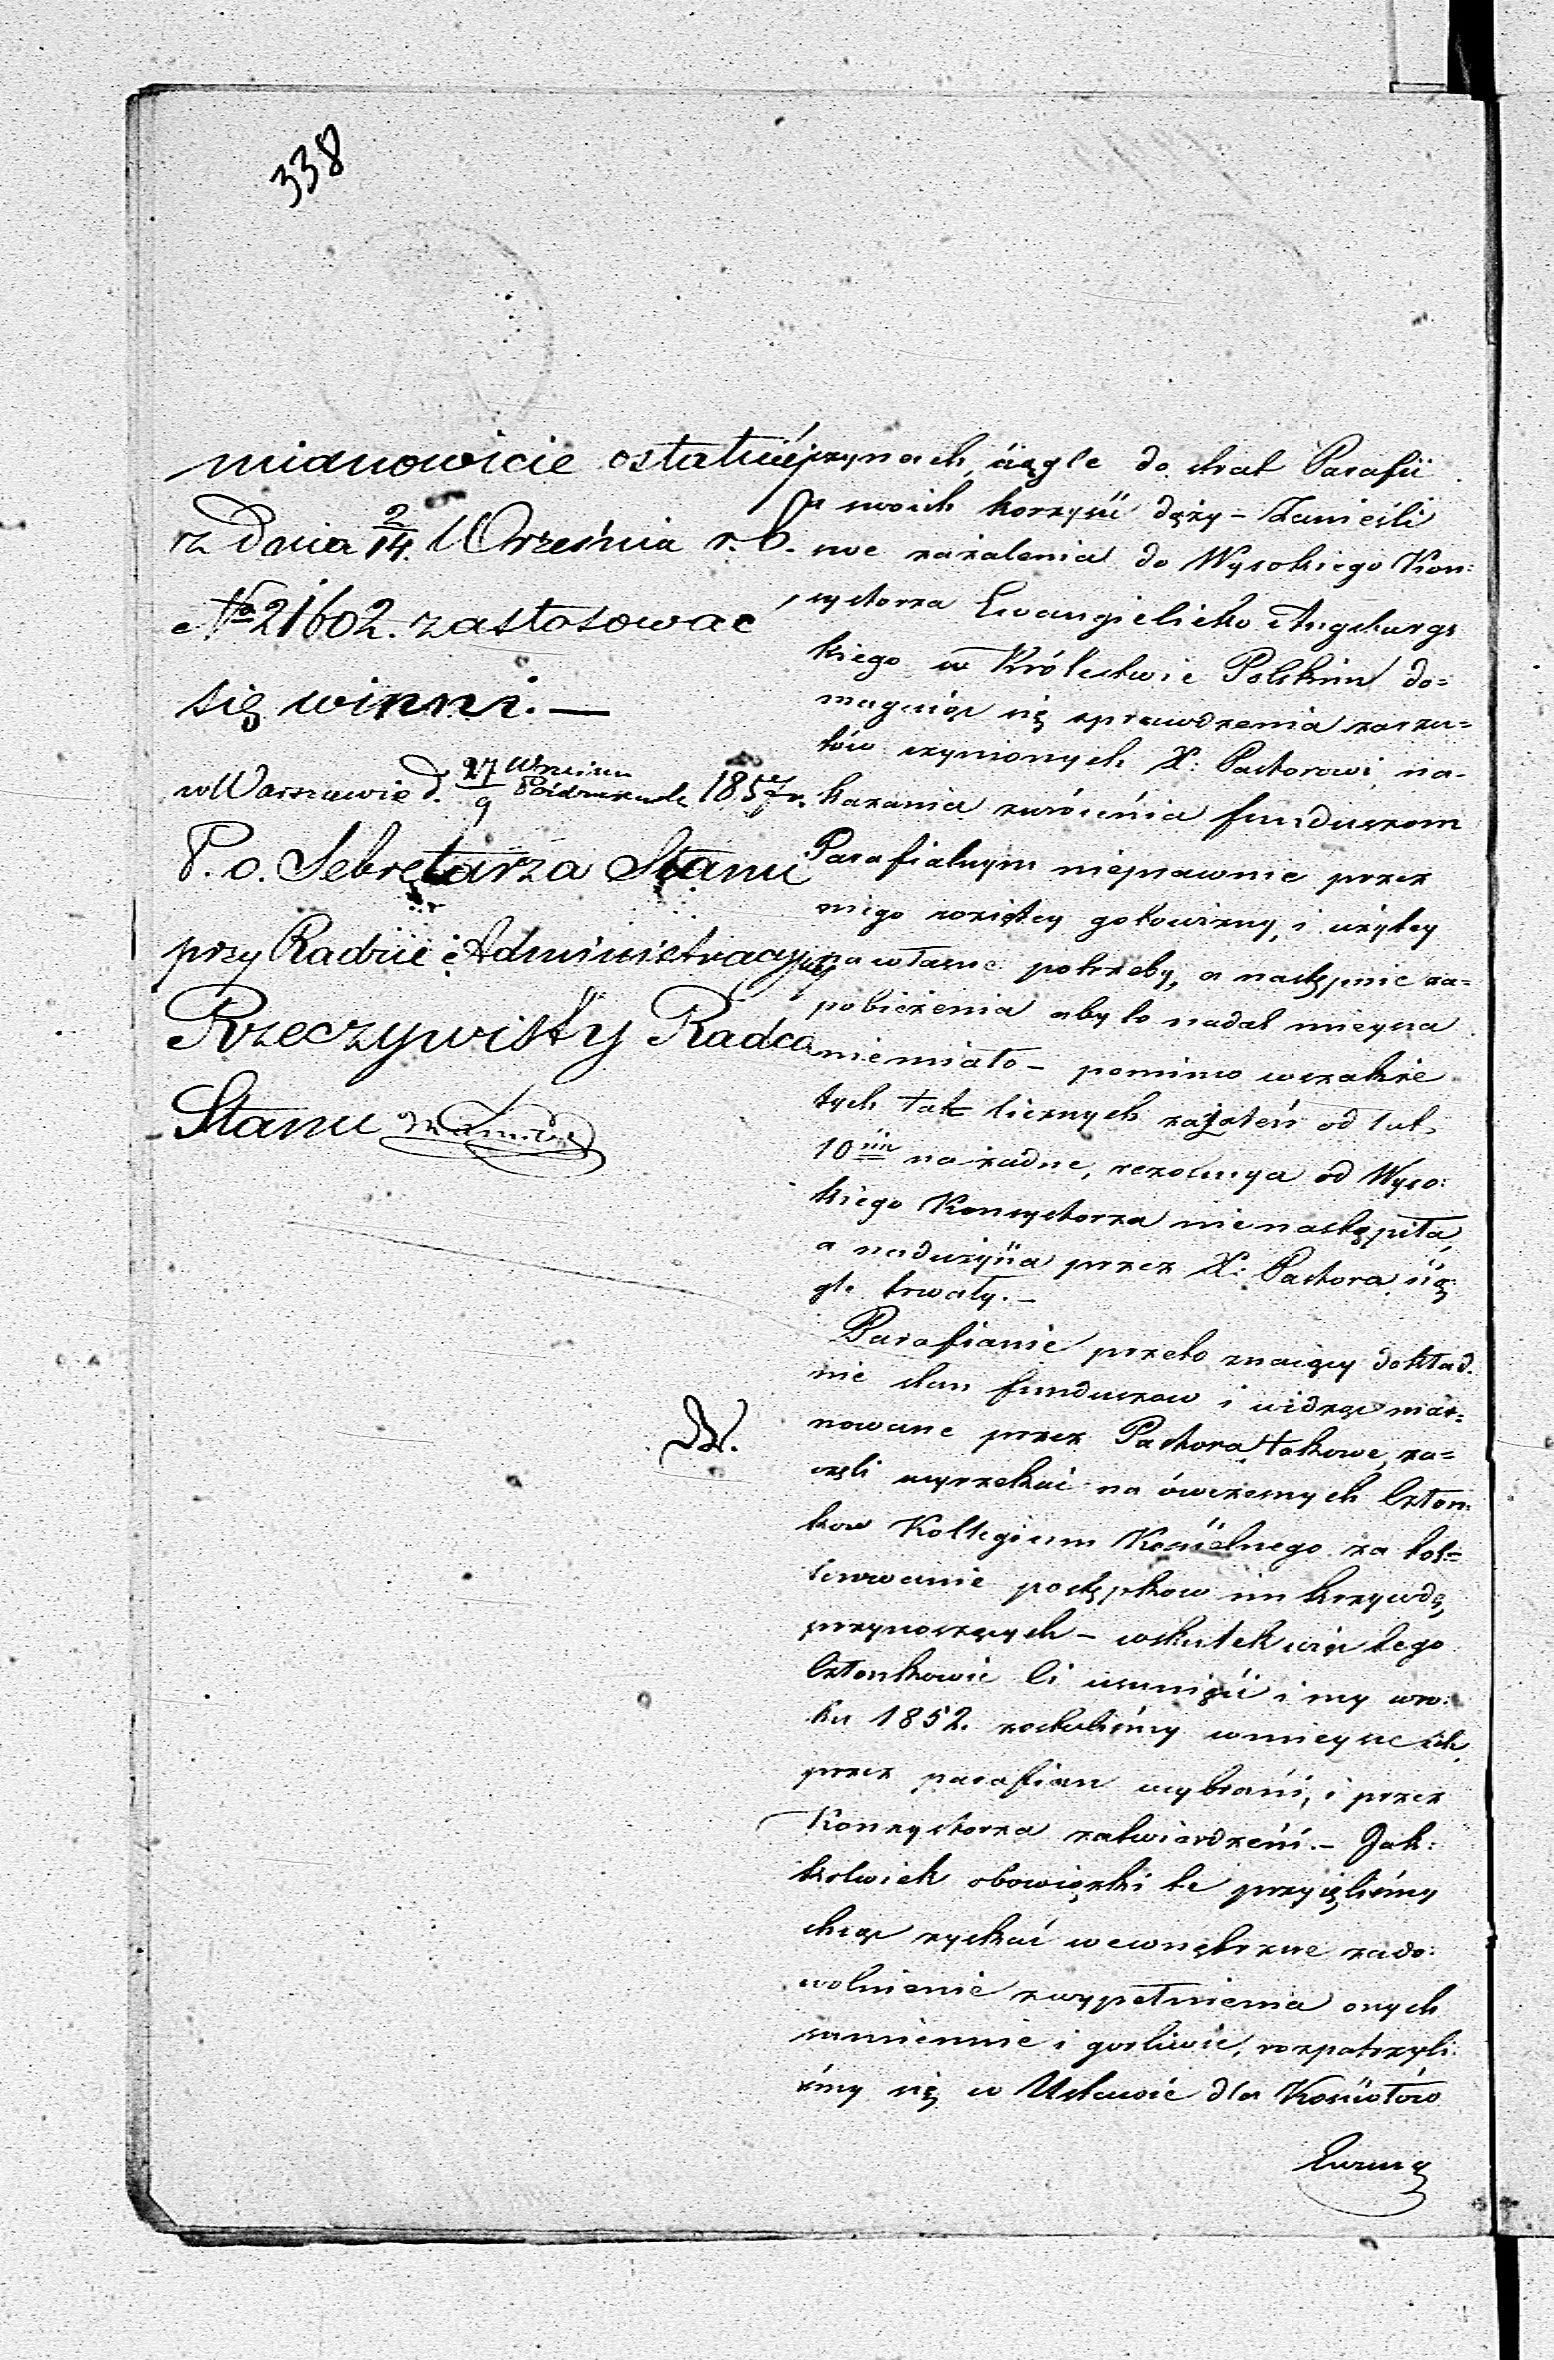 338
mianowicie ostatniéj
z Dnia 2/14. Września r. b.
No 21602. zastosować
się winni. —
w Warszawie d. 27 Września / 9 Października 1857 r.
P. o. Sekretarza Stanu
przy Radzie Administracyjnéj
Rzeczywisty Radca
Stanu
czynach, ciągle do strat Parafii
a swoich korzyści dąży – Zanieśli
swe zażalenia do Wysokiego Kon:
systorza Ewangielicko Augsburgs
kiego w Królestwie Polskim do=
magaiąc się sprawdzenia zarzu=
tów czynionych X: Pastorowi, na-
kazania zwrócenia funduszom
Parafialnym nieprawnie przez
niego wziętey gotowizny, i użytey
na własne potrzeby, a następnie za=
pobieżenia aby to nadal mieysca
niemiało – pomimo wszakże
tych tak licznych zażaleń od lat
10ciu na żadne, rezolucya od Wyso:
kiego Konsystorza nienastąpiła,
a nadużycia przez X: Pastora cią
gle trwały. –
Parafianie przeto znaiący dokład.
nie stan funduszow i widząc mar=
nowane przez Pastora takowe, za=
częli wyrzekać na ówczesnych Człon:
kow Kollegium Kościelnego za tol=
erowanie postępkow im krzywdę
przynoszących – wskutek więc tego
Członkowie Ci usunięci i my wro:
ku 1852. zostaliśmy wmieysce ich
przez parafian wybrani, i przez
Konsystorza zatwierdzeni. – Jak:
kolwiek obowiązki te przyięliśmy
chcąc zyskać wewnętrzne zado:
wolnienie zwypełnienia onych
sumiennie i gorliwie, rozpatrzyli:
śmy się w Ustawie dla Kościołów